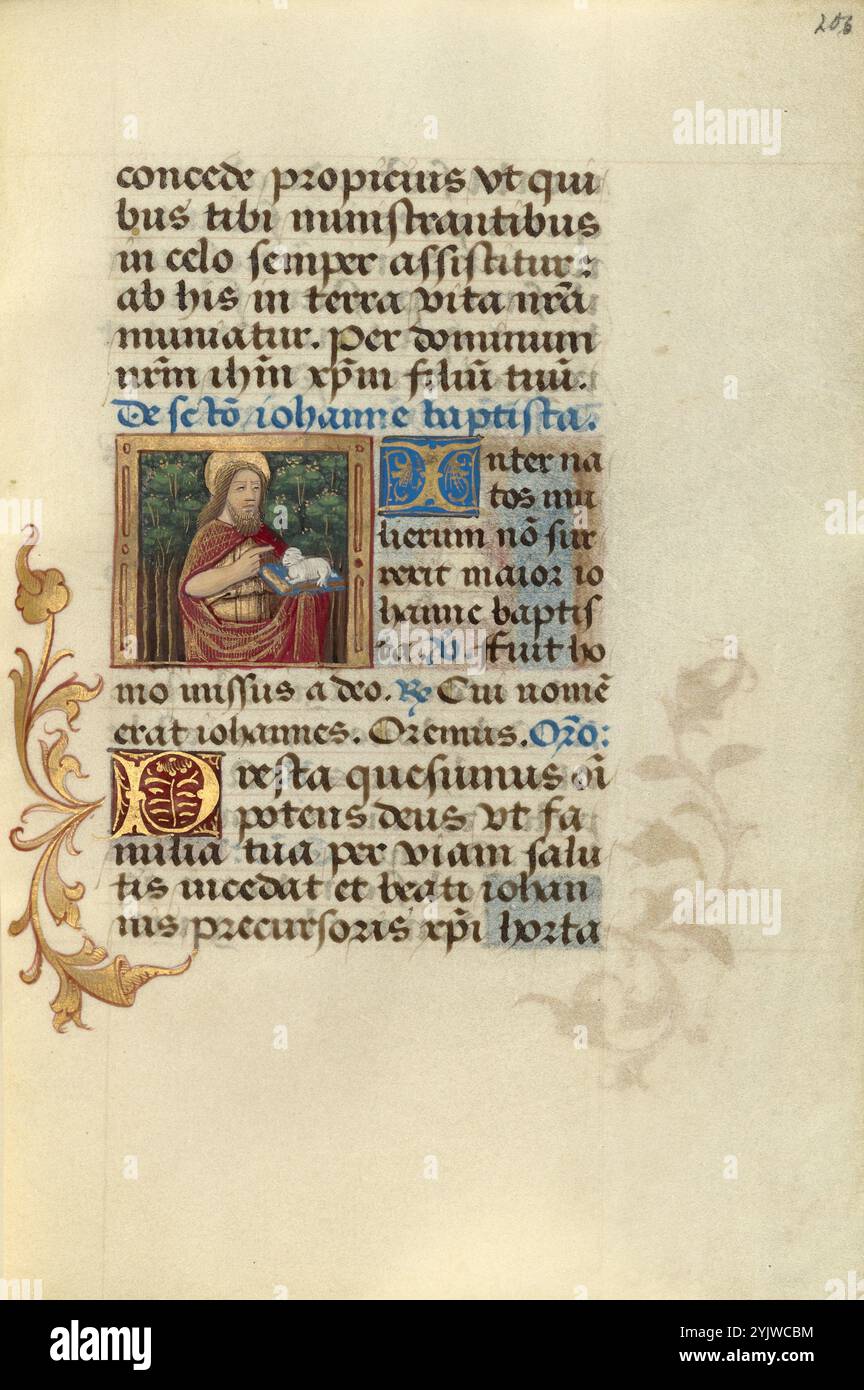 206
concede propicius vt qui
bus tibi ministrantibus
in celo semper assistitur:
ab his in terra vita nr̄a
muniatur. Per dominum
nr̄m ih̄m xp̄m filiū tuū.
De sc̄tō iohanne baptista.
Inter na
tos mu
lierum nō sur
rexit maior io
hanne baptis
ta. V. fuit ho
mo missus a deo. R Cui nomē
erat iohannes. Oremus. Orō:
Presta quesumus oī
potens deus vt fa
milia tua per viam salu
tis incedat et beati iohan
nis precursoris xp̄i horta
alamy
alamy
alamy
alamy
Image ID: 2YJWCBM
www.alamy.com